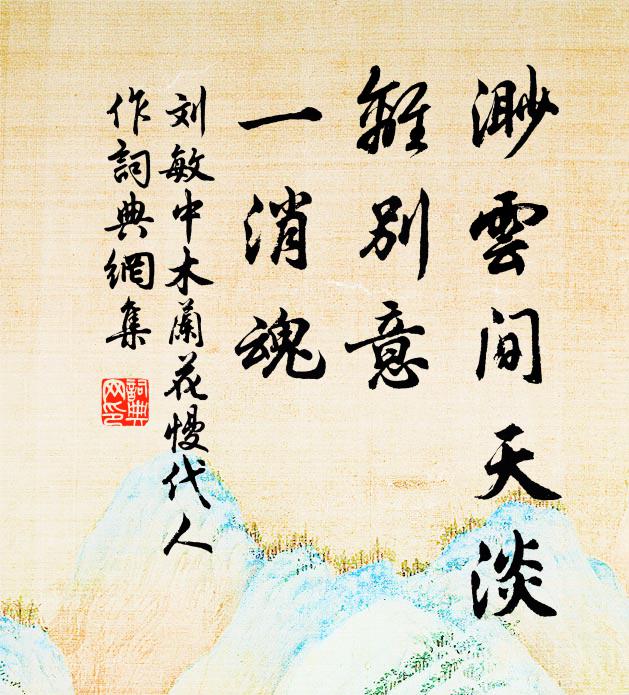 渺雲閒天淡
離別意
一消魂
刘敏中木蘭花慢代人
作詞典網集
詞典
网印